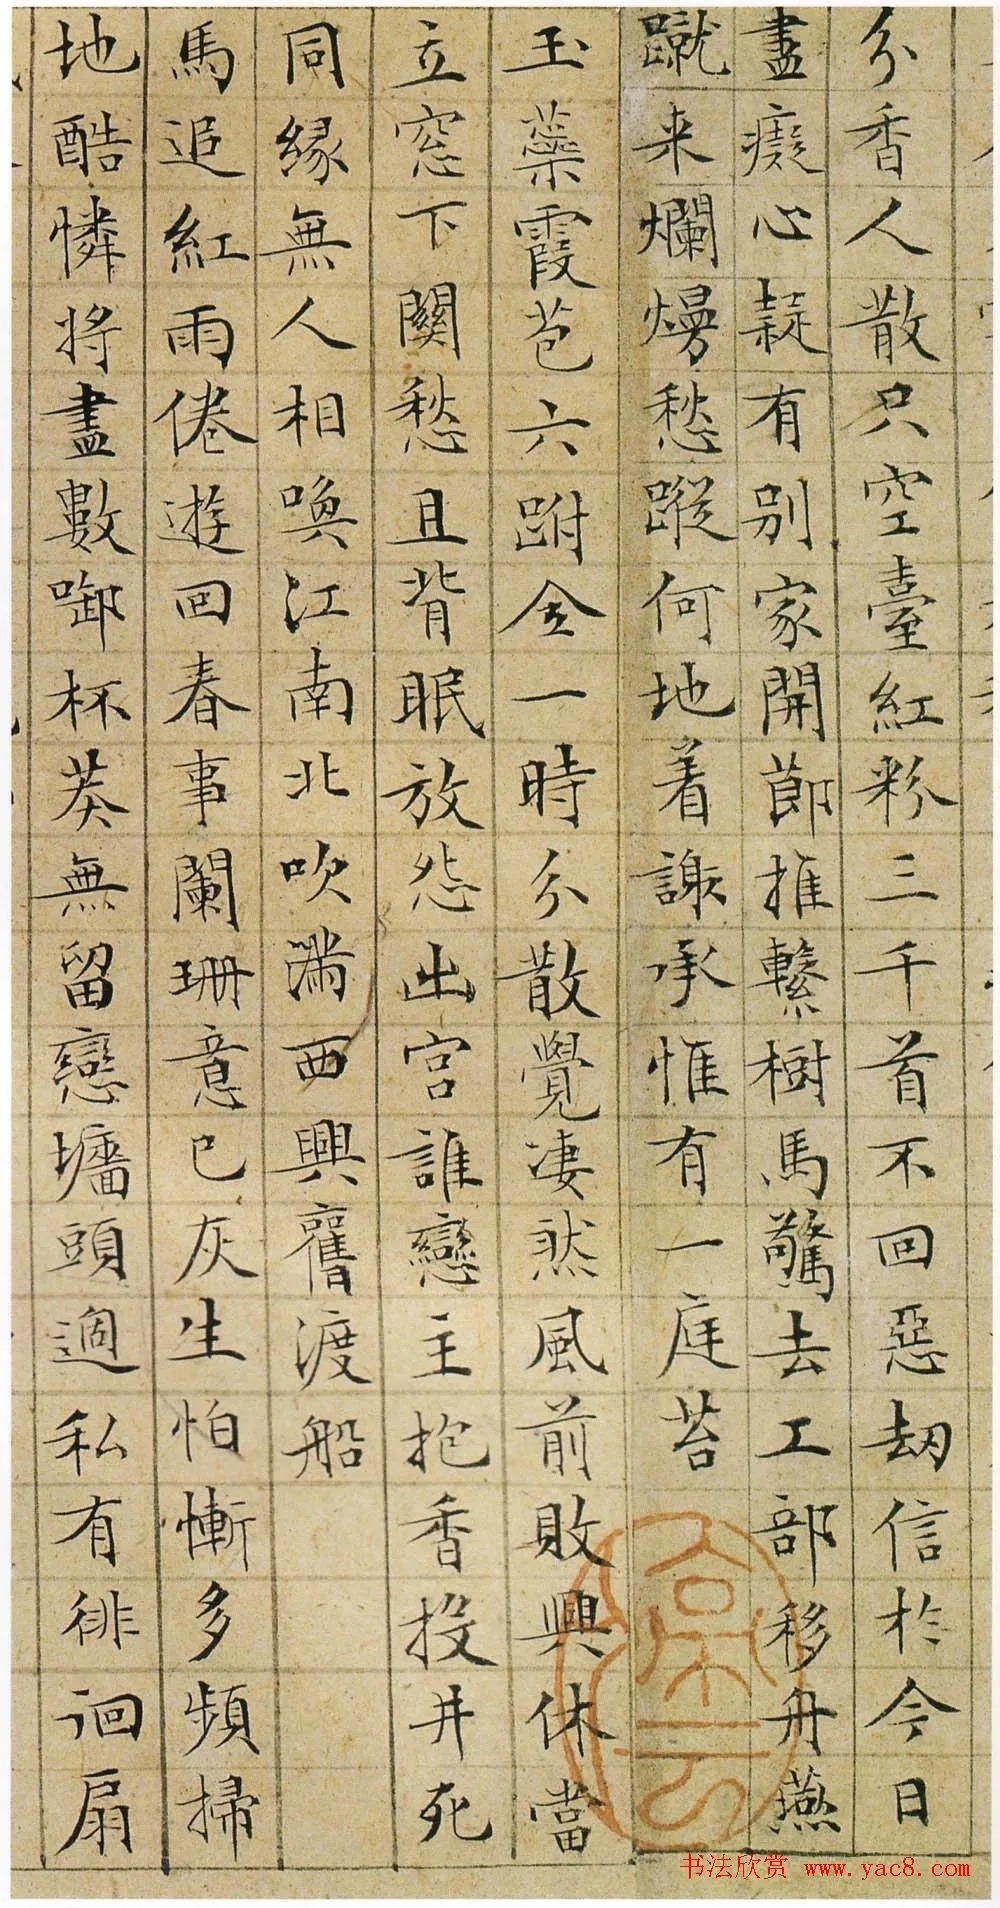 分香人散只空臺紅粉三千首不回惡劫信於今日
盡癡心疑有別家開節推繫樹馬驚去工部移舟燕
蹴来爛熳愁蹤何地着謝承惟有一庭苔
玉蘂霞苞六跗全一時分散覺凄然風前敗興休當
立窓下關愁且背眠放怨出宮誰戀主抱香投井死
同緣無人相喚江南北吹滿西興舊渡船
馬追紅雨倦遊回春事闌珊意已灰生怕慚多頻掃
地酷憐將盡數啣杯莫無留戀墻頭過私有徘徊扇
书法欣赏 www.yac8.com